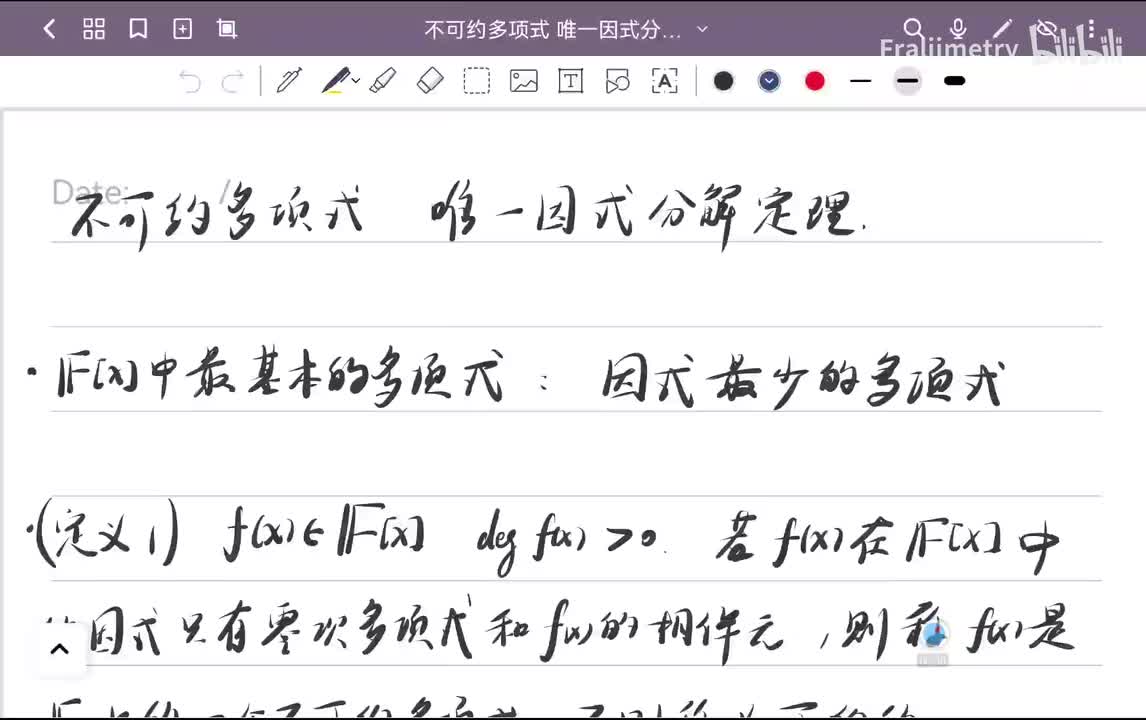 不可约多项式 唯一因式分...
Fraljimetry bilibili
Date: /
不可约多项式 唯一因式分解定理.
· F[x]中最基本的多项式 : 因式最少的多项式
·(定义1) f(x)∈F[x] deg f(x)>0. 若f(x)在F[x]中
因式只有零次多项式和f(x)的相伴元,则称f(x)是